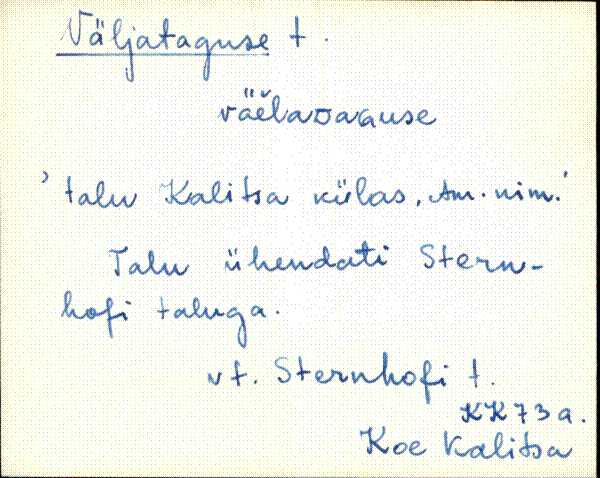 Väljataguse t.
väĕlaᴅaɢuse
'talu Kalitsa külas, Am. nim.'
Talu ühendati Stern-
hofi taluga.
vt. Sternhofi t.
KK73a.
Koe Kalitsa